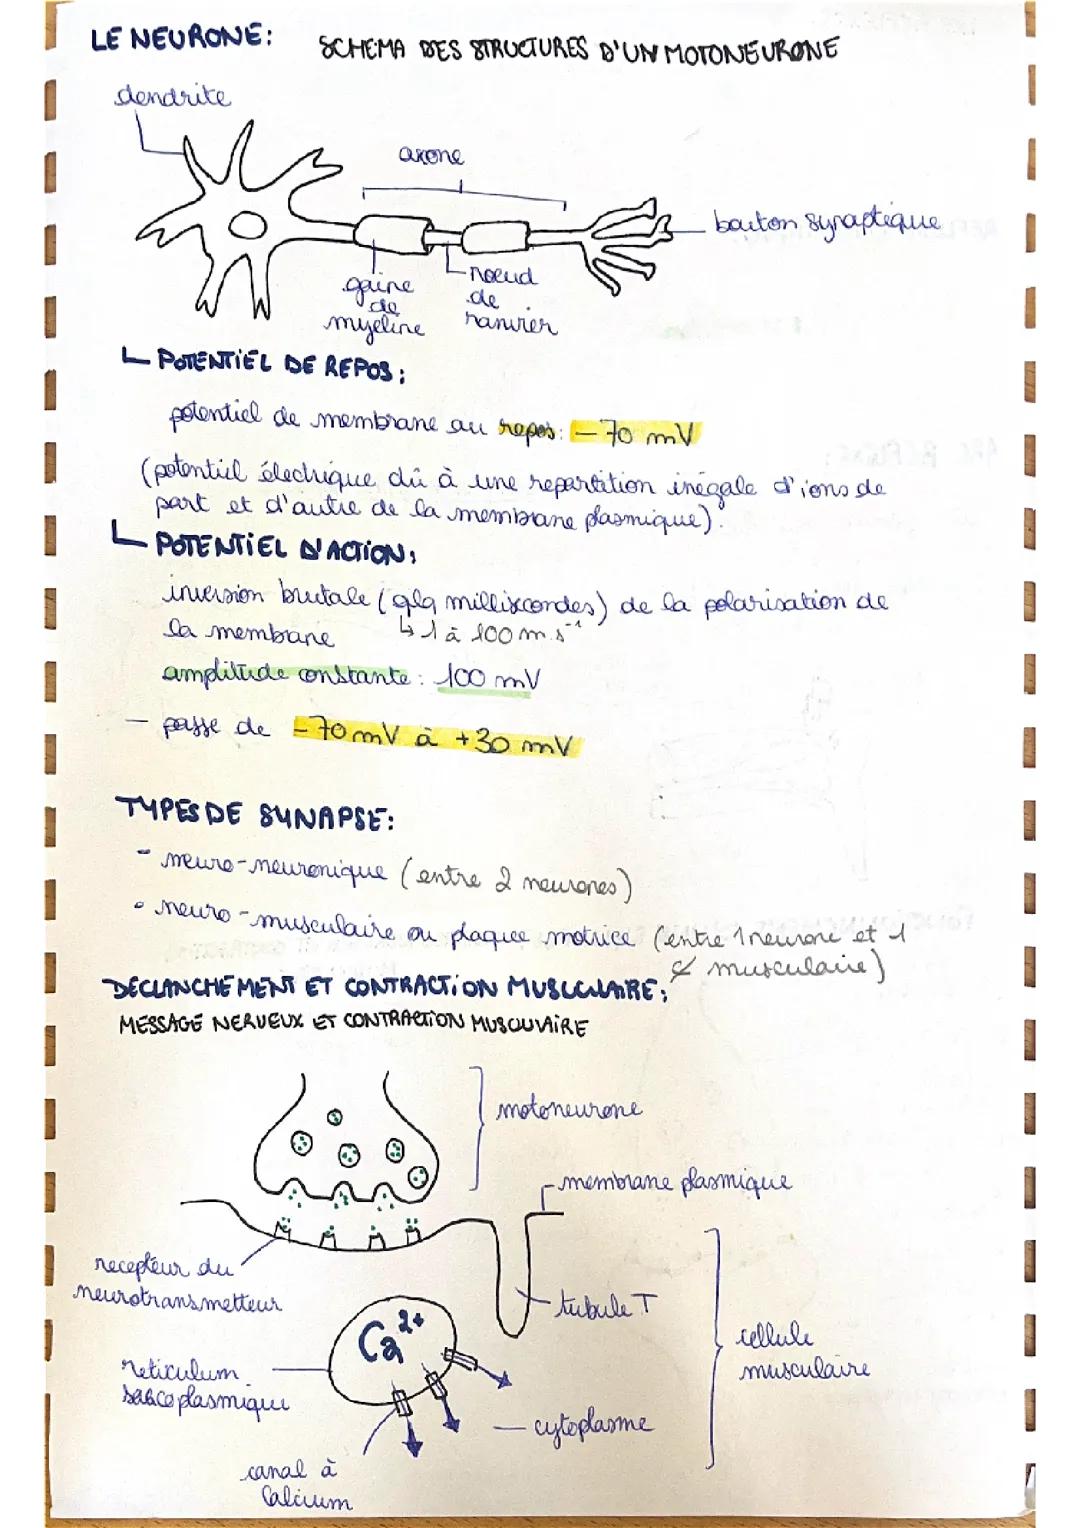 LE NEURONE:
SCHEMA DES STRUCTURES D'UN MOTONEURONE
dendrite
axone
bouton synaptique
gaine
de
myeline
noeud
de
ranvier
POTENTIEL DE REPOS:
potentiel de membrane au repos: -70 mV
(potentiel électrique dû à une repartition inégale d'ions de
part et d'autre de la membrane plasmique).
POTENTIEL D'ACTION:
inversion brutale (qlq millisecondes) de la polarisation de
la membrane
↳ 1 à 100 m.s⁻¹
amplitude constante: 100 mV
- passe de -70 mV à +30 mV
TYPES DE SYNAPSE:
- neuro-neuronique (entre 2 neurones)
• neuro-musculaire ou plaque motrice (entre 1 neurone et 1
musculaire)
DÉCLANCHEMENT ET CONTRACTION MUSCULAIRE:
MESSAGE NERVEUX ET CONTRACTION MUSCULAIRE
motoneurone
membrane plasmique
recepteur du
neurotransmetteur
tubule T
Ca²⁺
cellule
musculaire
reticulum
sarcoplasmique
cytoplasme
canal à
Calcium